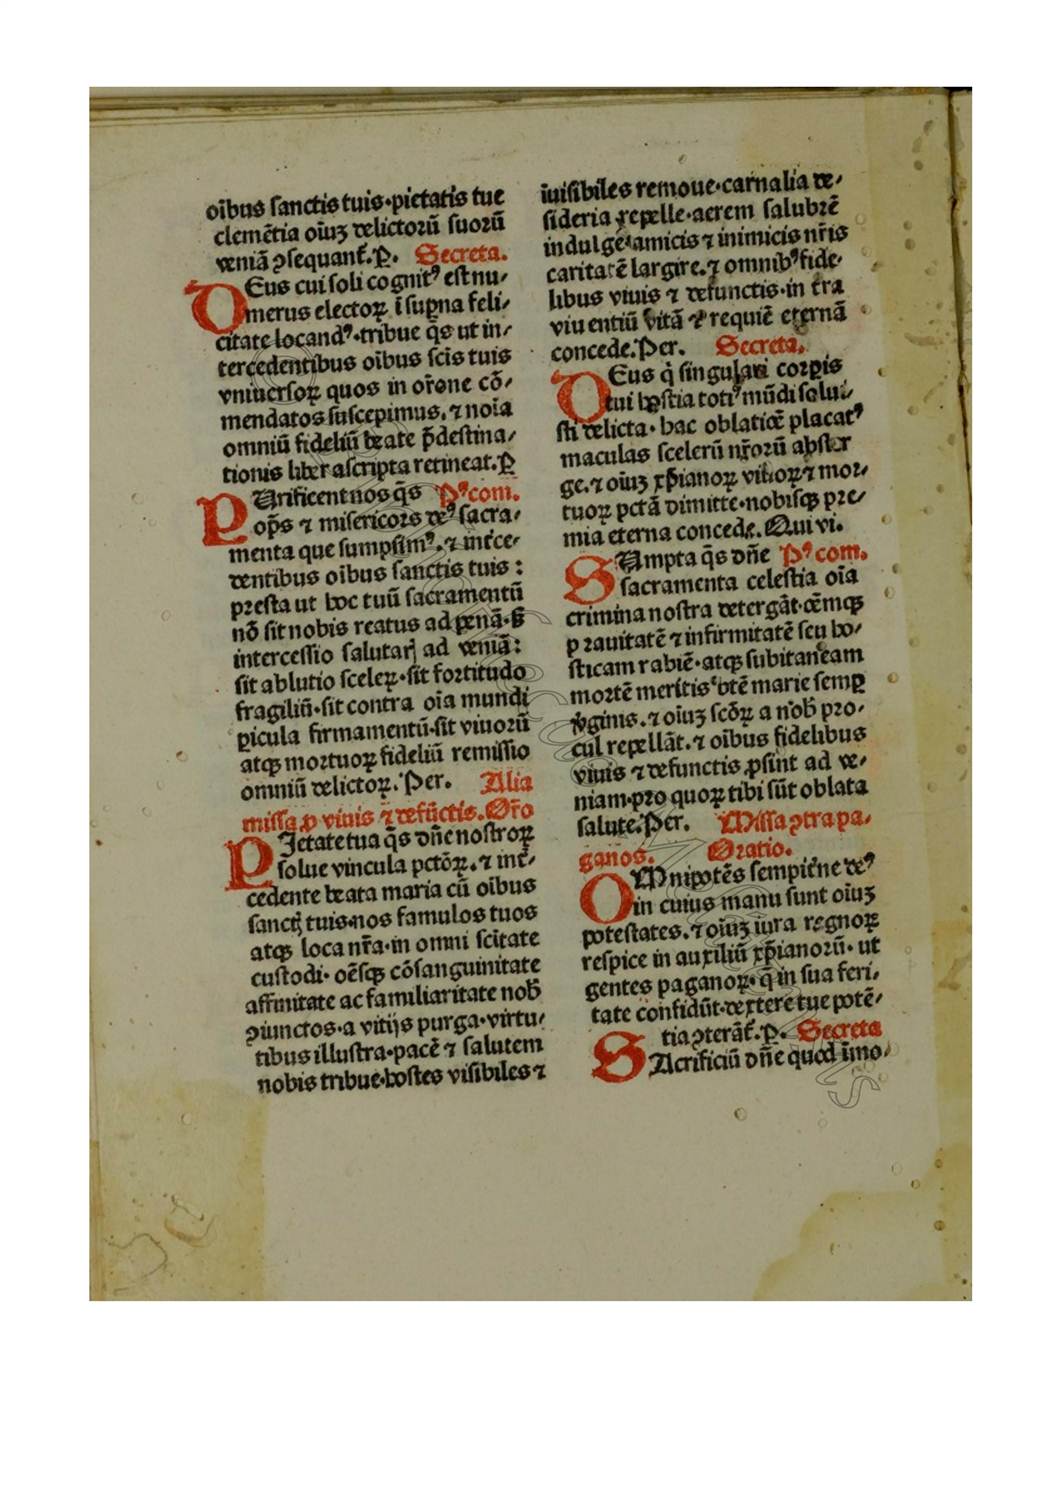 oībus sanctis tuis·pietatis tue
clemētia oīuꝫ delictorū suorū
veniā ꝯsequant̄.P. Secreta.
DEus cui soli cognitꝰ est nu-
merus electoꝝ ī suꝑna feli-
citate locandꝰ·tribue q̄s ut in-
tercedentibus oībus scīs tuis
vniuersoꝝ quos in or̄one cō-
mendatos suscepimus.⁊ noīa
omniū fideliū beate p̄destina-
tionis liber ascripta retineat.P
PUrificent nos q̄s Pꝰcom.
op̄s ⁊ misericors deꝰ sacra-
menta que sumpsimꝰ.⁊ int̄ce-
dentibus oībus sanctis tuis:
presta ut hoc tuū sacramentū
nō sit nobis reatus ad penā·s̄
intercessio salutarꝭ ad veniā:
sit ablutio sceleꝝ·sit fortitudo
fragiliū·sit contra oīa mundi
ꝑicula firmamentū·sit viuorū
atqꝫ mortuoꝝ fideliū remissio
omniū delictoꝝ.Per. Alia
missa ꝓ viuis ⁊ defūctis.Or̄o
PIetate tua q̄s dn̄e nostroꝝ
solue vincula pctōꝝ.⁊ int̄-
cedente beata maria cū oībus
sanctꝭ tuis·nos famulos tuos
atqꝫ loca nr̄a·in omni scītate
custodi·oēsqꝫ cōsanguinitate
affinitate ac familiaritate nob̄
ꝯiunctos·a vitijs purga·virtu-
tibus illustra·pacē ⁊ salutem
nobis tribue·hostes visibiles ⁊
īuisibiles remoue·carnalia de-
sideria repelle·aerem salubrē
indulge·amicis ⁊ inimicis nr̄is
caritatē largire.⁊ omnibꝰ fide-
libus viuis ⁊ defunctis·in t̄ra
viuentiū vitā ⁊ requiē eternā
concede.Per. Secreta.
DEus q̄ singulari corꝑis
tui hostia totiꝰ mūdi solui-
sti delicta·hac oblatiōe placatꝰ
maculas scelerū nr̄orū abster
ge.⁊ oīuꝫ xp̄ianoꝝ viuoꝝ ⁊ mor-
tuoꝝ pctā dimitte·nobisqꝫ pre-
mia eterna concede.Qui vi.
SUmpta q̄s dn̄e Pꝰcom.
sacramenta celestia oīa
crimina nostra detergāt·oēmqꝫ
prauitatē ⁊ infirmitatē seu ho-
sticam rabiē·atqꝫ subitaneam
mortē meritis btē marie semꝑ
v̄ginis.⁊ oīuꝫ scōꝝ a nob̄ pro-
cul repellāt.⁊ oībus fidelibus
viuis ⁊ defunctis ꝓsint ad ve-
niam·pro quoꝝ tibi sūt oblata
salute.Per. Missa ꝯtra pa-
ganos. Oratio.
OMnipotēs sempit̄ne deꝰ
in cuius manu sunt oīuꝫ
potestates.⁊ oīuꝫ iura regnoꝝ
respice in auxiliū xp̄ianorū·ut
gentes paganoꝝ·q̄ in sua feri-
tate confidūt·dextere tue potē-
tia ꝯterāt̄.P. Secreta
SAcrificiū dn̄e quod īmo-